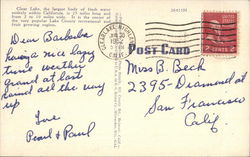 Clear Lake, the largest body of fresh water
entirely within California, is 25 miles long and
from 2 to 10 miles wide. It is the center of
the very popular Lake County recreational and
fruit growing regions.
POST CARD
Dear Barbara
having a nice lazy
time weather
grand at last
rained all the way
up
Love
Pearl & Paul
Miss B. Beck
2395 - Diamond st
San Francisco
Calif.